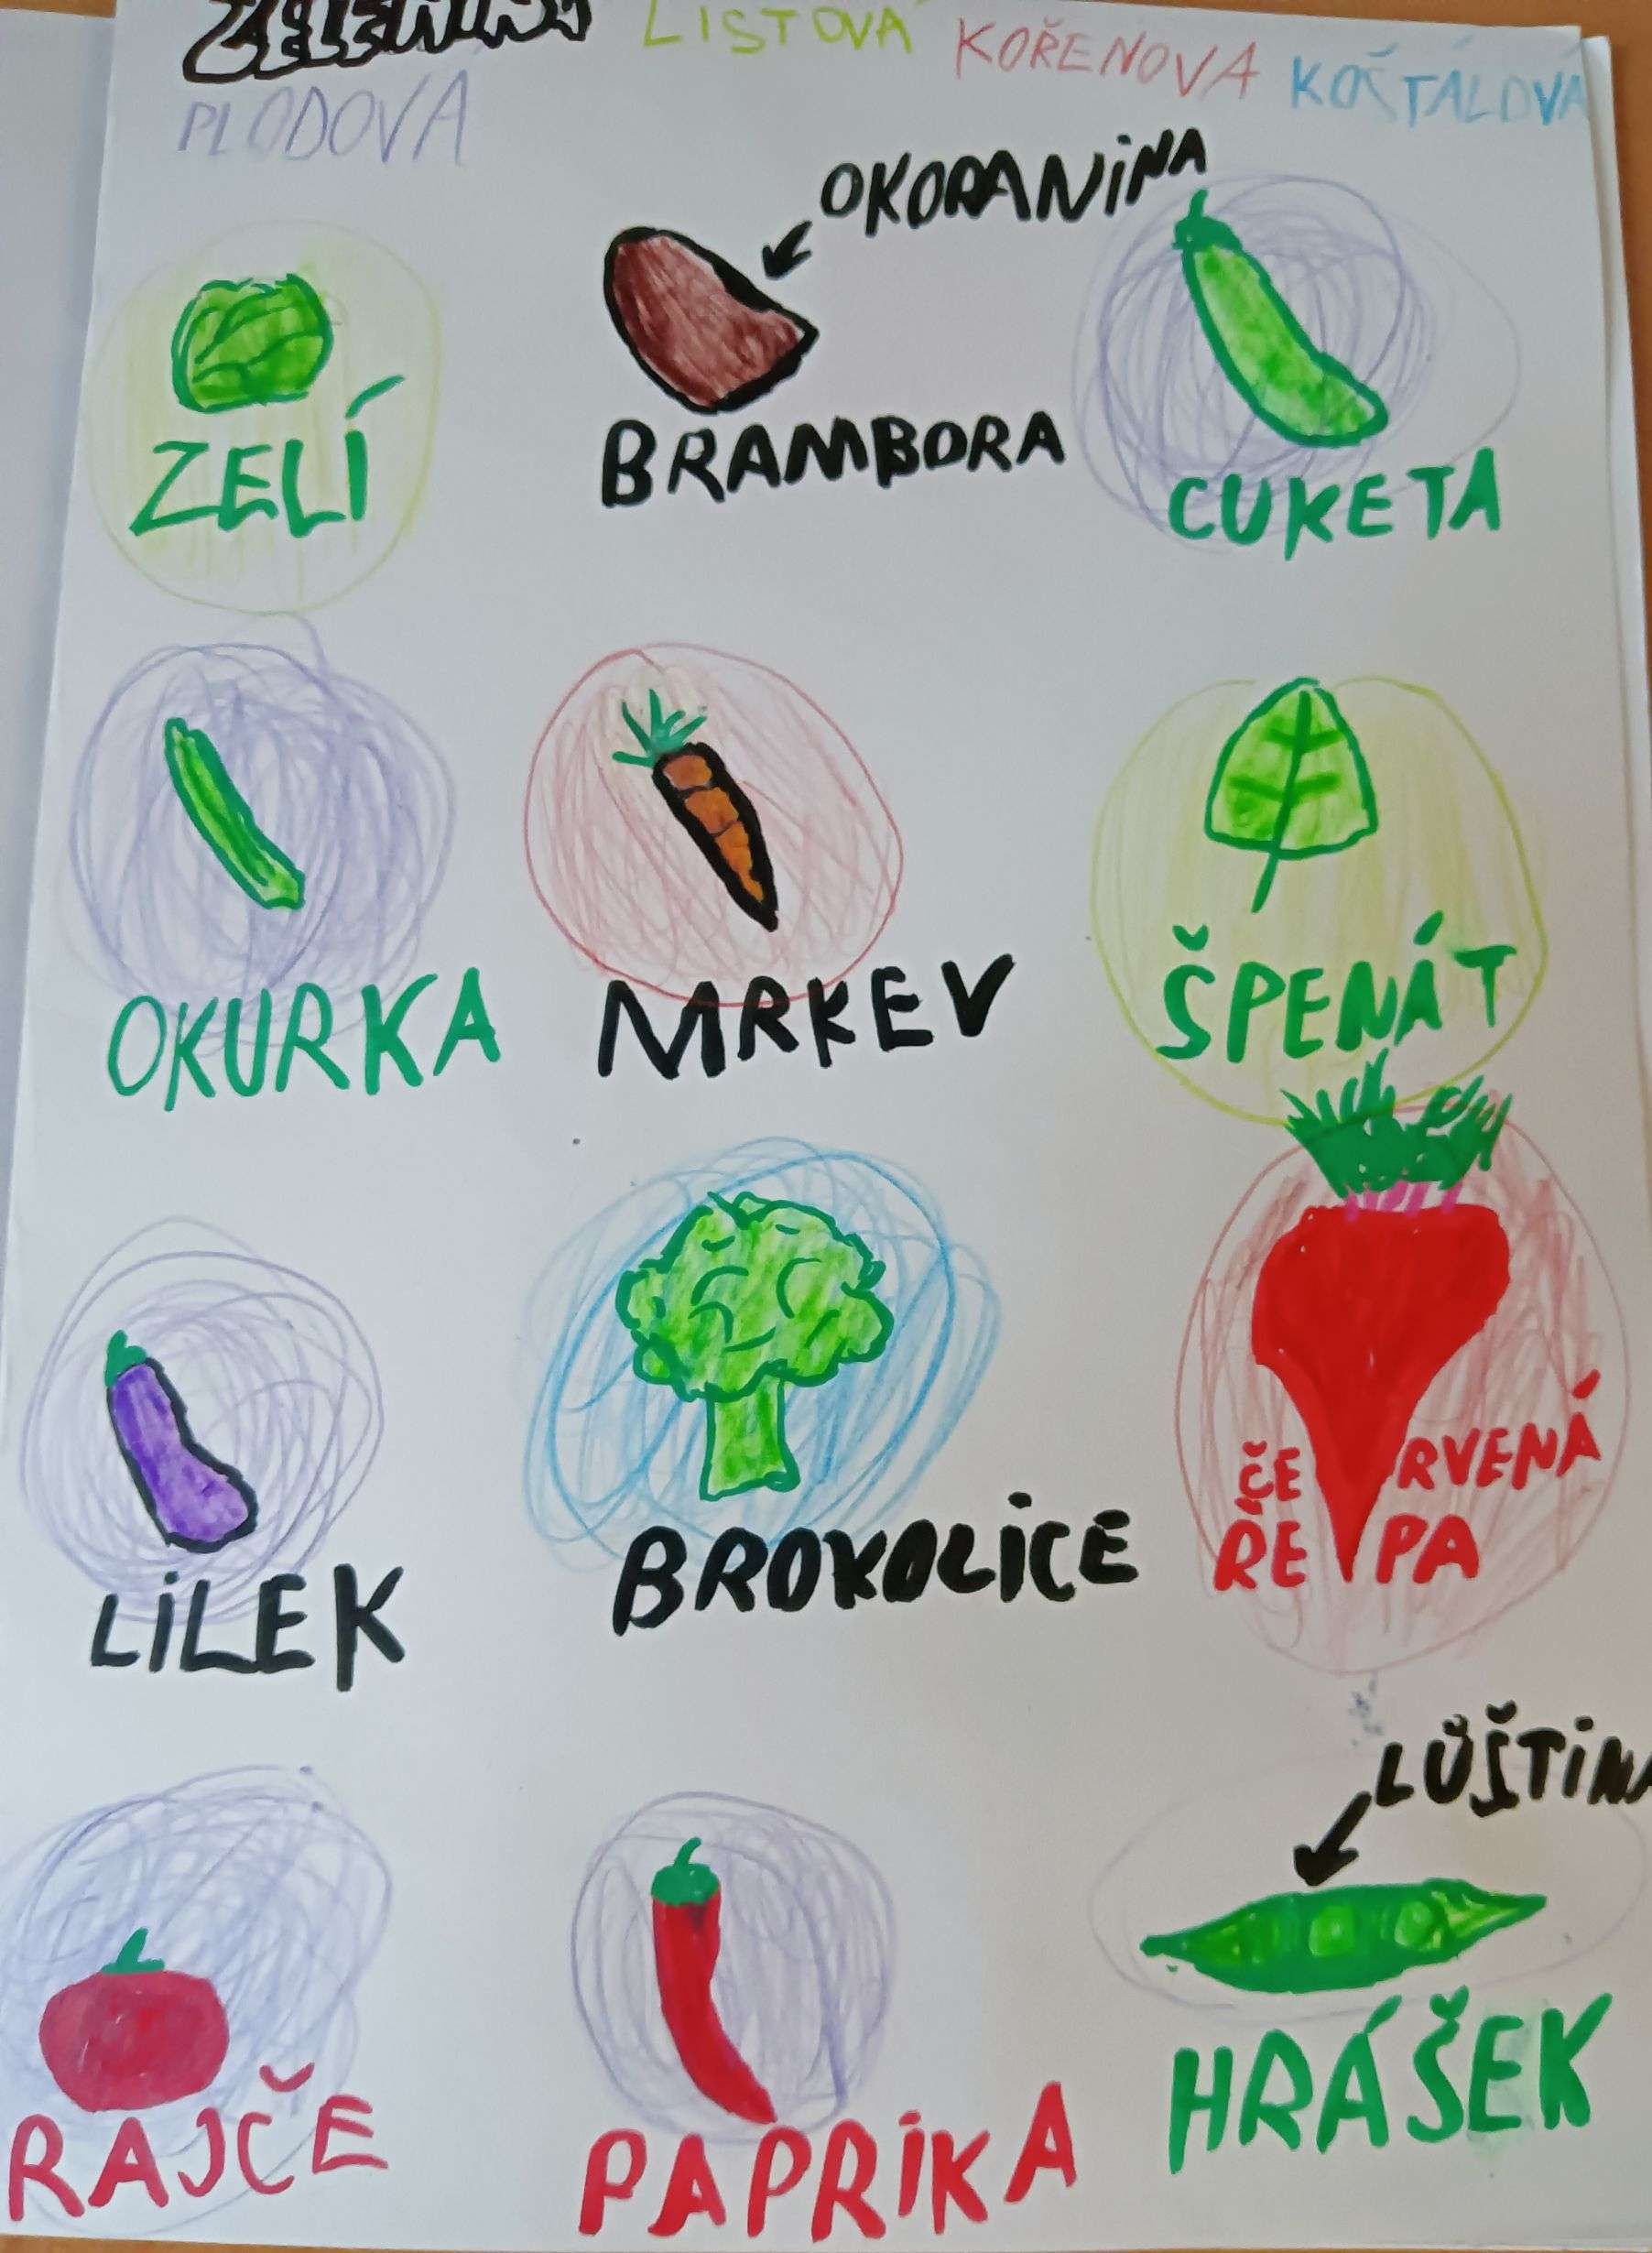 ZELENINY LISTOVÁ KOŘENOVA KOŠTÁLOVÁ
PLODOVA
OKOPANiNA
ZELÍ
BRAMBORA
CUKETA
OKURKA
MRKEV
ŠPENÁT
LiLEK
BROKOLiCE
ČERVENÁ
ŘEPA
LŮŠTiNA
RAJČE
PAPRiKA
HRÁŠEK